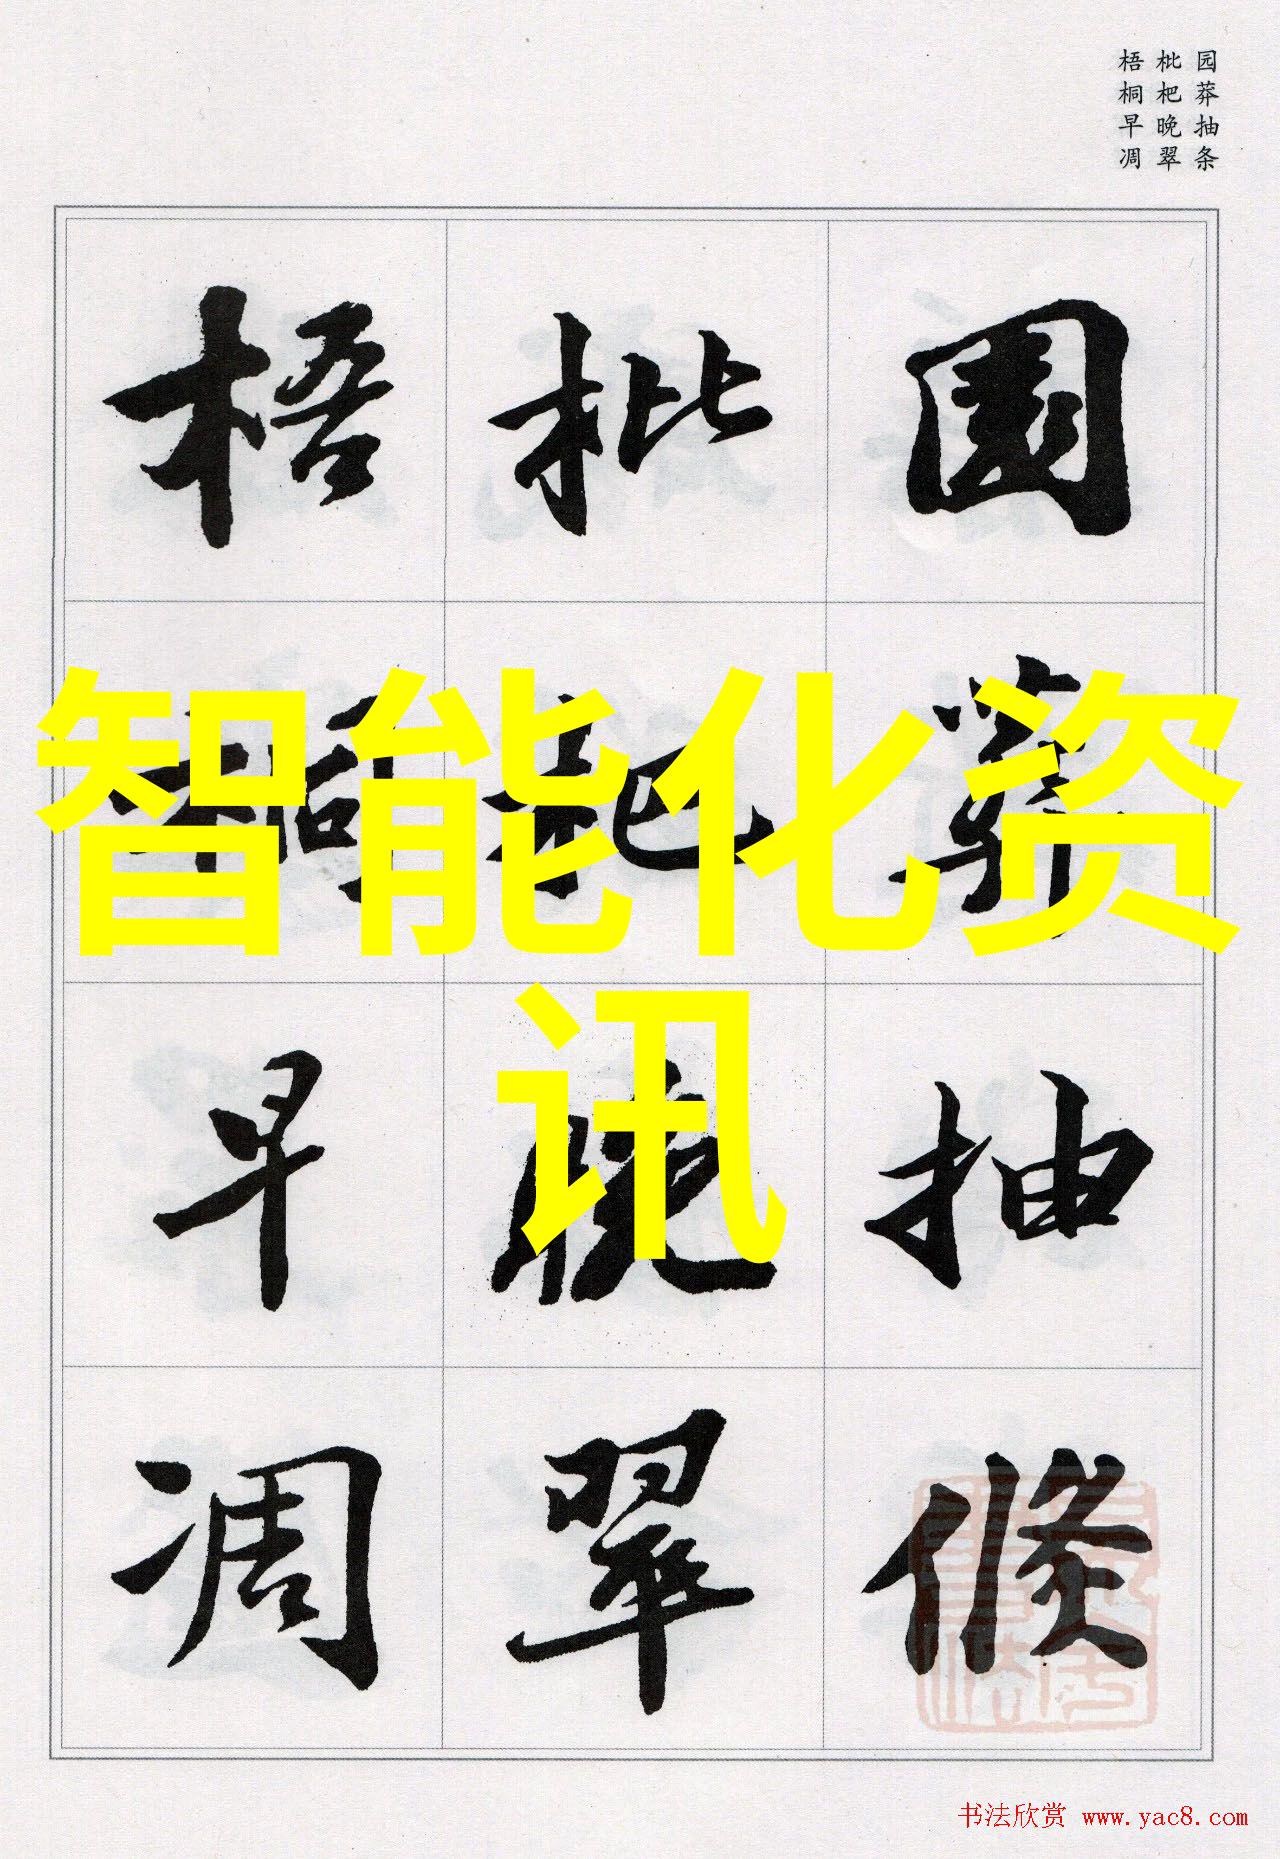 园莽抽条
枇杷晚翠
梧桐早凋
園莽抽條
枇杷晚翠
梧桐早凋
智能化资
讯
书法欣赏 www.yac8.com